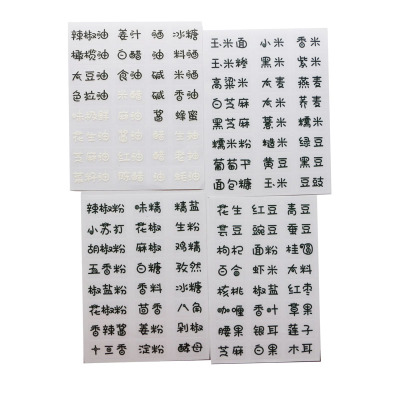 辣椒油 姜汁 酒 冰糖
橄榄油 白醋 油 料酒
大豆油 食油 碱 米酒
色拉油 碱 香油
酱 蜂蜜
玉米面 小米 香米
玉米糁 黑米 紫米
高粱米 大麦 燕麦
白芝麻 大米 荞麦
黑芝麻 薏米 糯米
糯米粉 糙米 绿豆
葡萄干 黄豆 黑豆
面包糠 玉米 豆豉
辣椒粉 味精 精盐
小苏打 花椒 生粉
胡椒粉 麻椒 鸡精
五香粉 白糖 孜然
椒盐粉 香料 冰糖
花椒粉 茴香 八角
香辣酱 姜粉 剁椒
十三香 淀粉 酵母
花生 红豆 青豆
芸豆 豌豆 蚕豆
枸杞 面粉 桂圆
百合 虾米 大料
核桃 椒盐 红枣
咖喱 香叶 草果
腰果 银耳 莲子
芝麻 白果 木耳